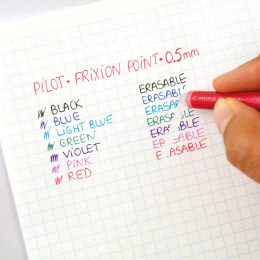 PILOT · FRIXION POINT · 0.5mm
BLACK
BLUE
LIGHT BLUE
GREEN
VIOLET
PINK
RED
ERASABLE
ERASABL
ERASAB
ERASABLE
ERA ABLE
ERASABLE
E ASABLE